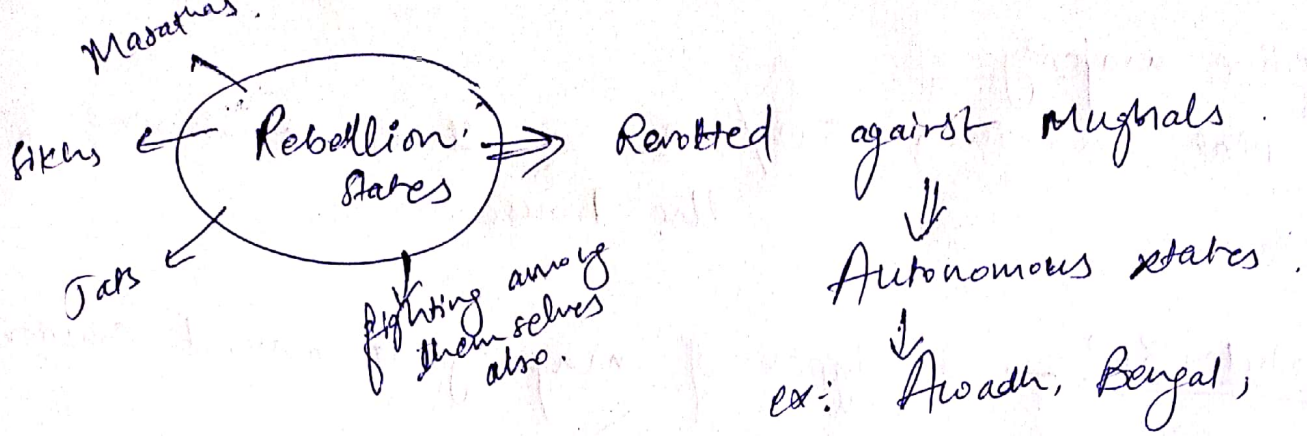 Marathas.
Sikhs
Rebellion.
states
Revolted against Mughals.
Jats
fighting among
themselves
also.
Autonomous states.
ex: Awadh, Bengal,